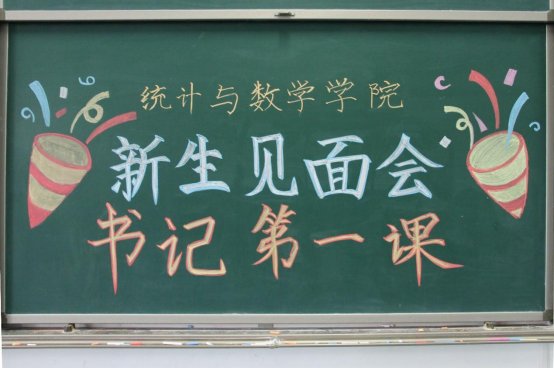 统计与数学学院
新生见面会
书记第一课